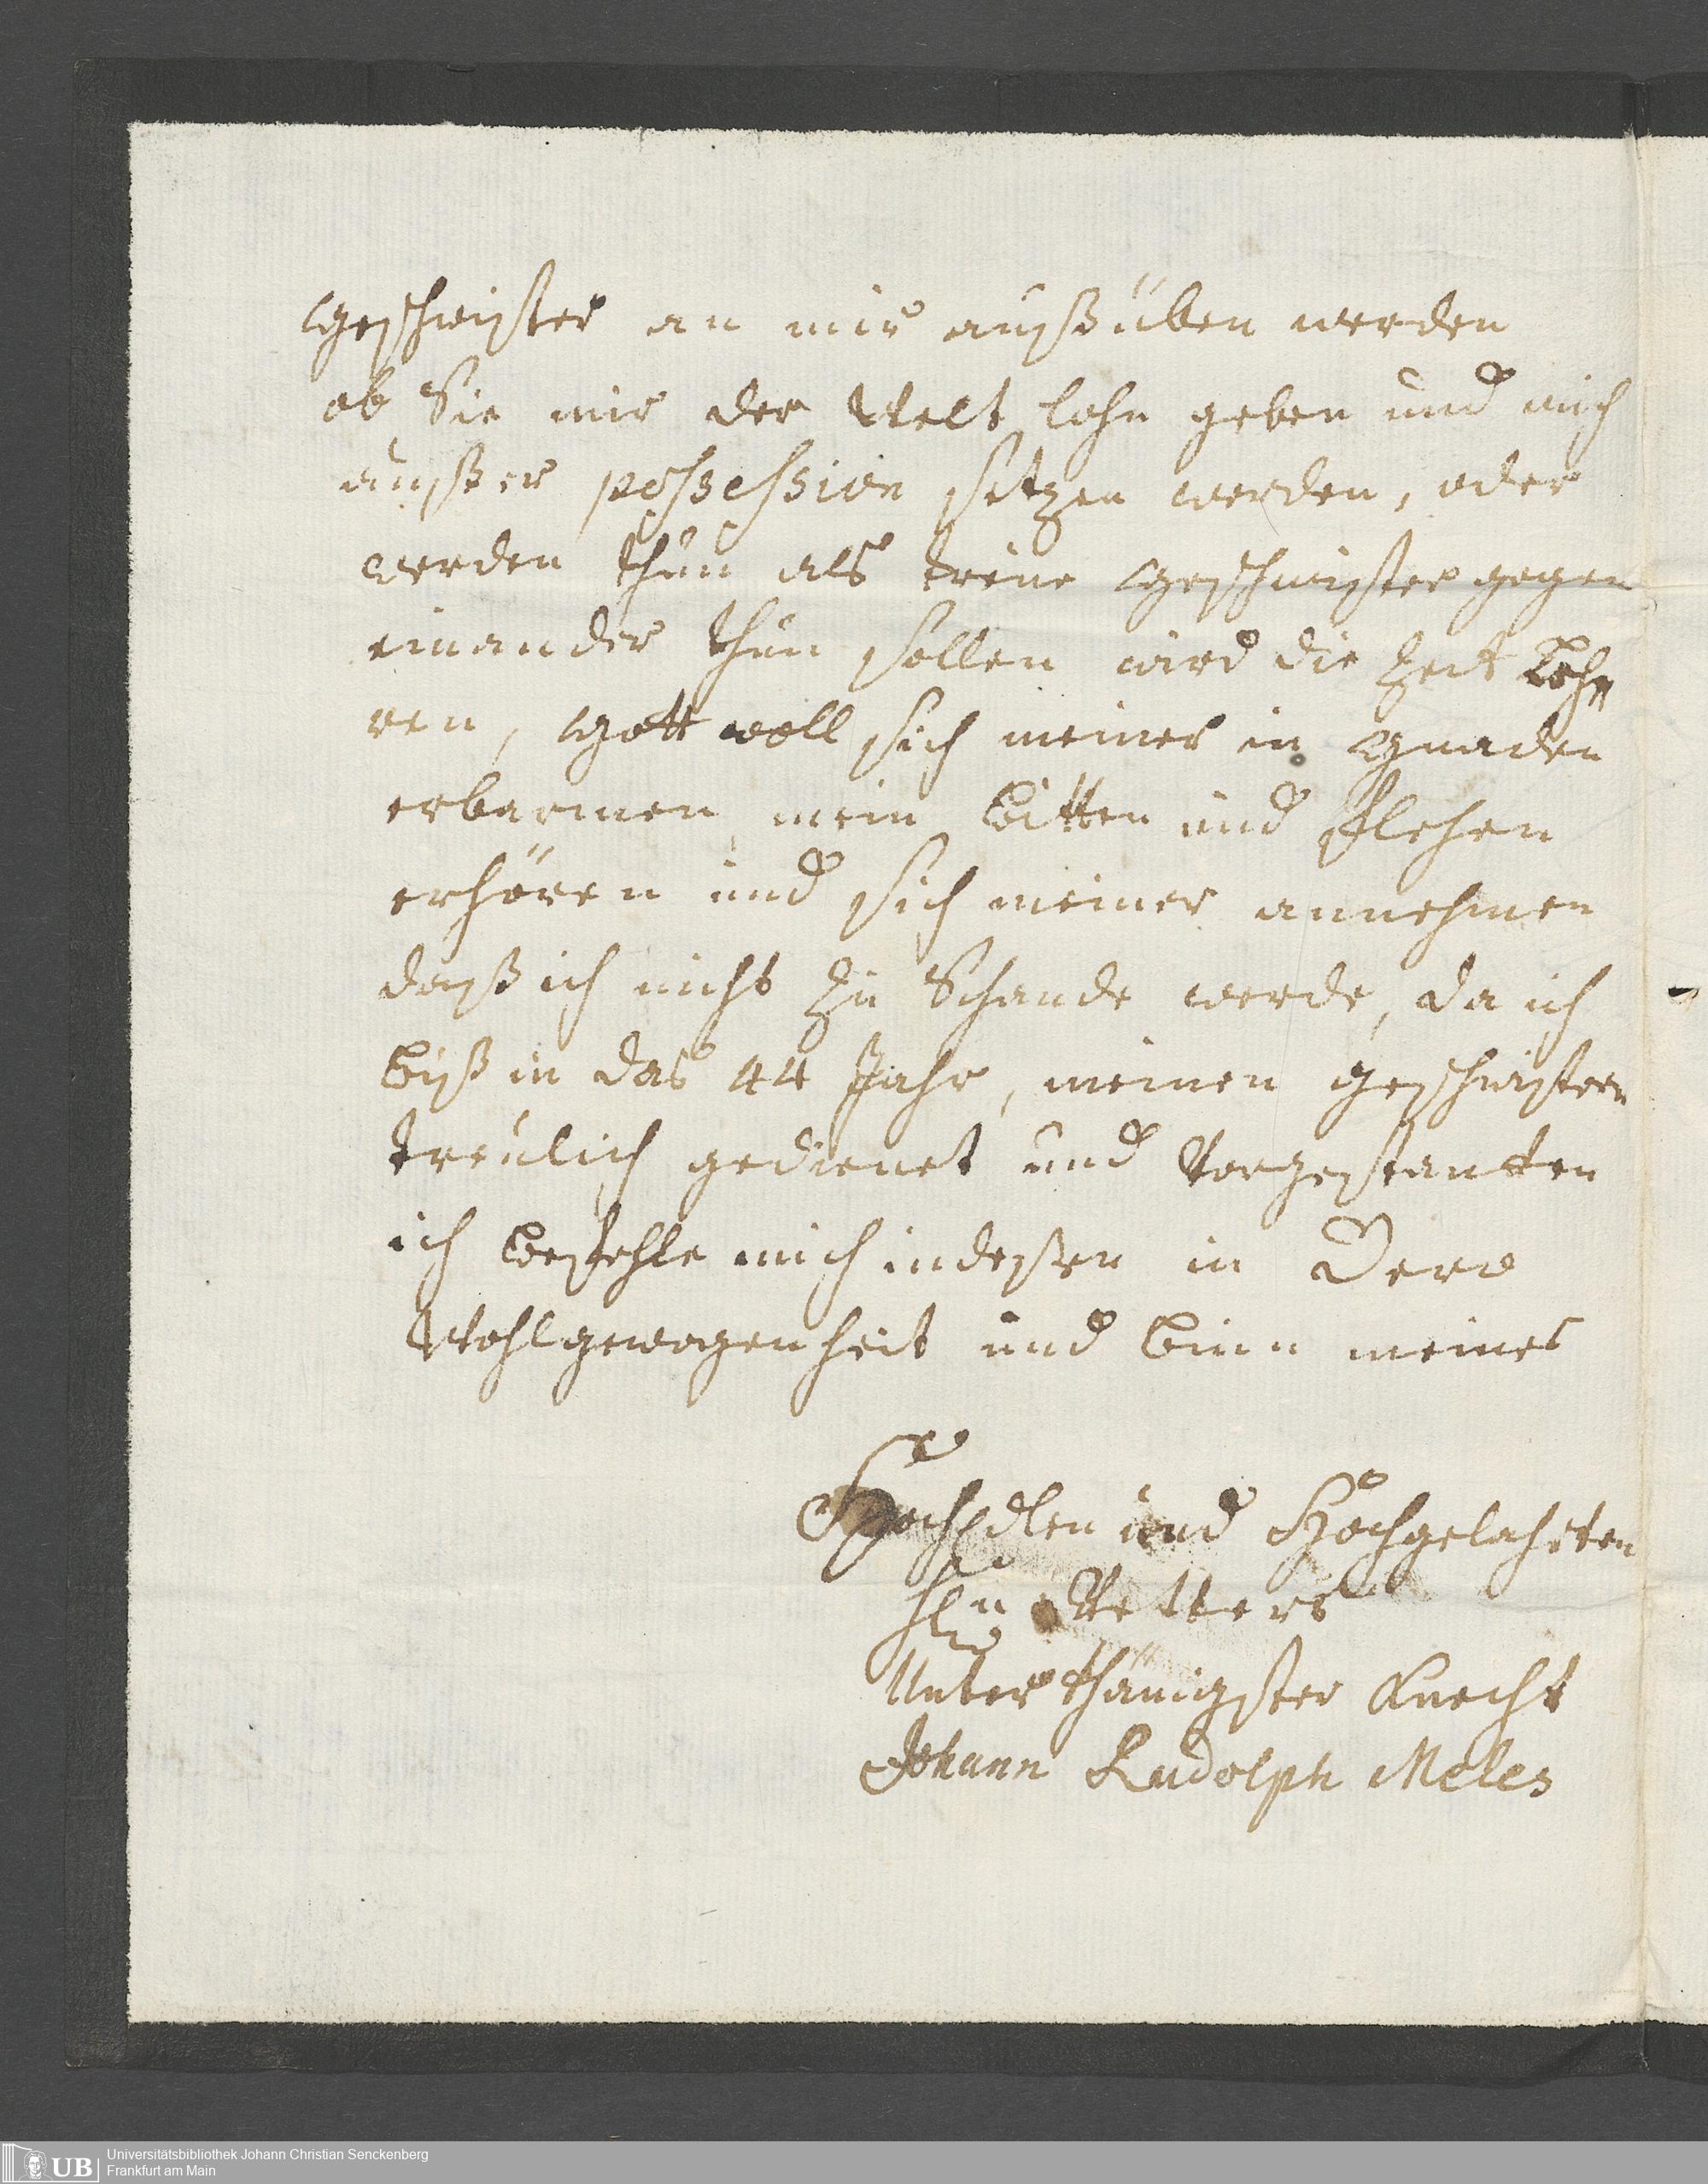 Geschwister an mir außüben werden
ob Sie mir der Welt lohn geben und mich
außer possession setzen werden, oder
werden thun als treue Geschwister gegen
einander thun sollen wird die Zeit Leh=
ren, Gott woll sich meiner in Gnaden
erbarmen, mein bitten und flehen
erhören und sich meiner annehmen
daß ich nicht zu Schande werde, da ich
biß in das 44 Jahr, meinen geschwistern
treulich gedienet und vorgestantten
ich befehle mich indeßen in Dero
Wohlgewogenheit und binn meines
HochEdlen und Hochgelahrten
Vetters
Unterthänigster Knecht
Johann Rudolph Meles
UB Universitätsbibliothek Johann Christian Senckenberg
Frankfurt am Main